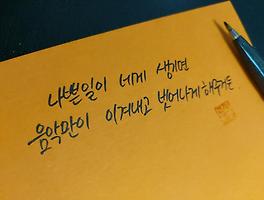 나쁜일이 네게 생기면
음악만이 이겨내고 벗어나게 해주거든